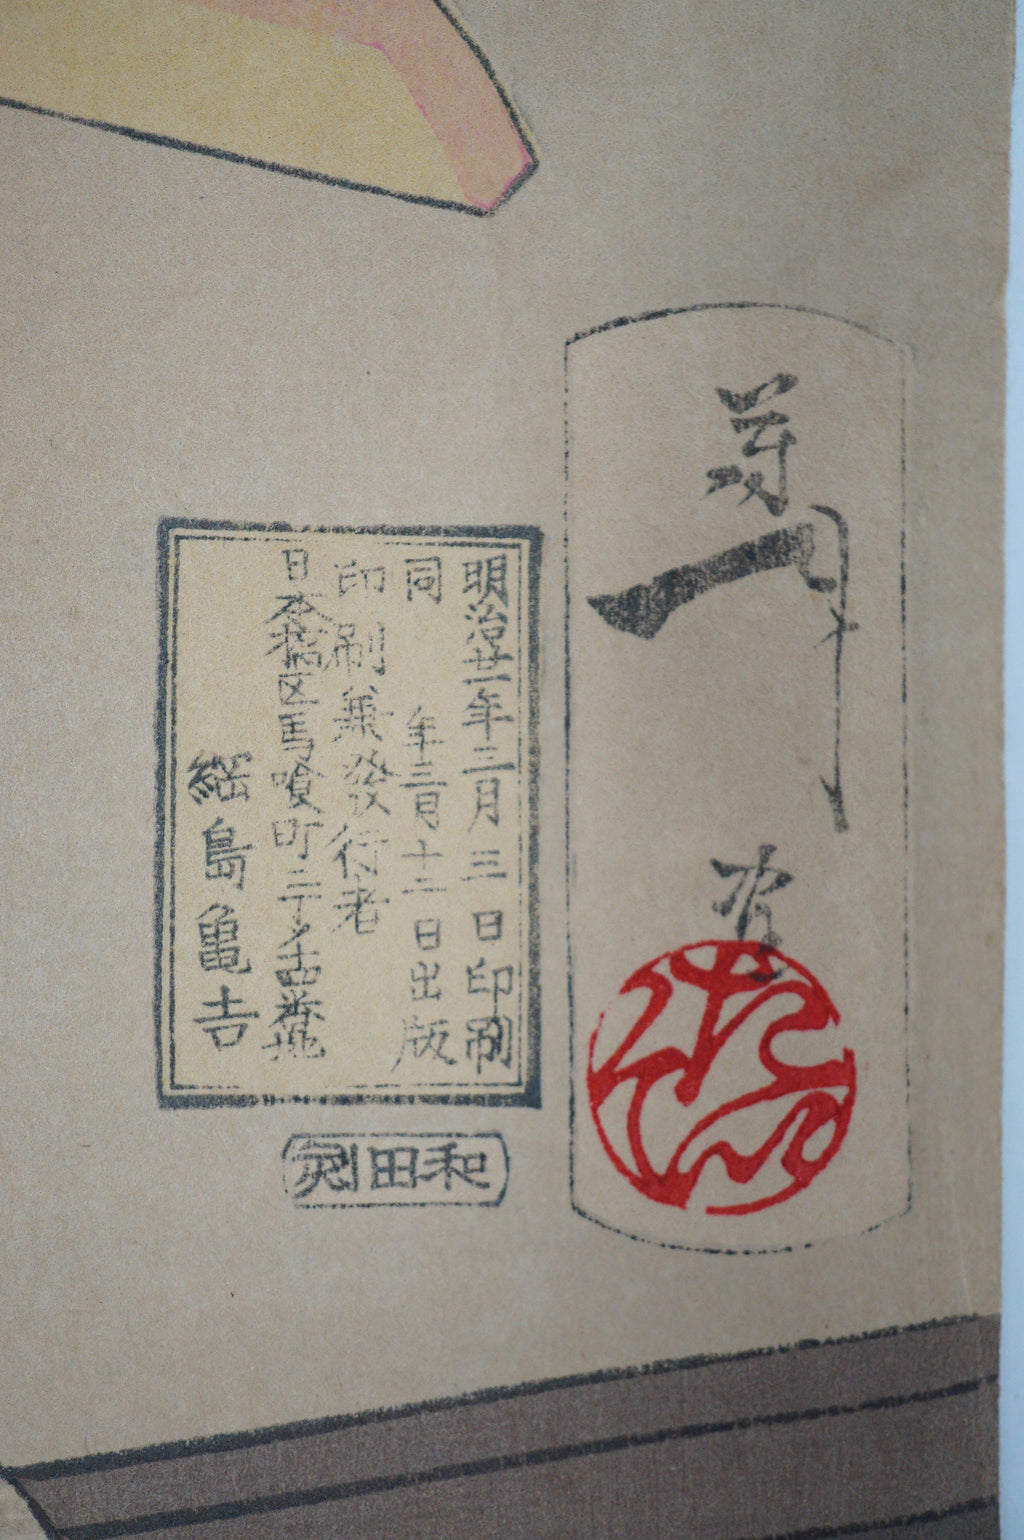 芳年
明治廿一年三月三日印刷
同 年三月十二日出版
印刷兼發行者
日本橋区馬喰町二丁目
綱島亀吉
和田刻